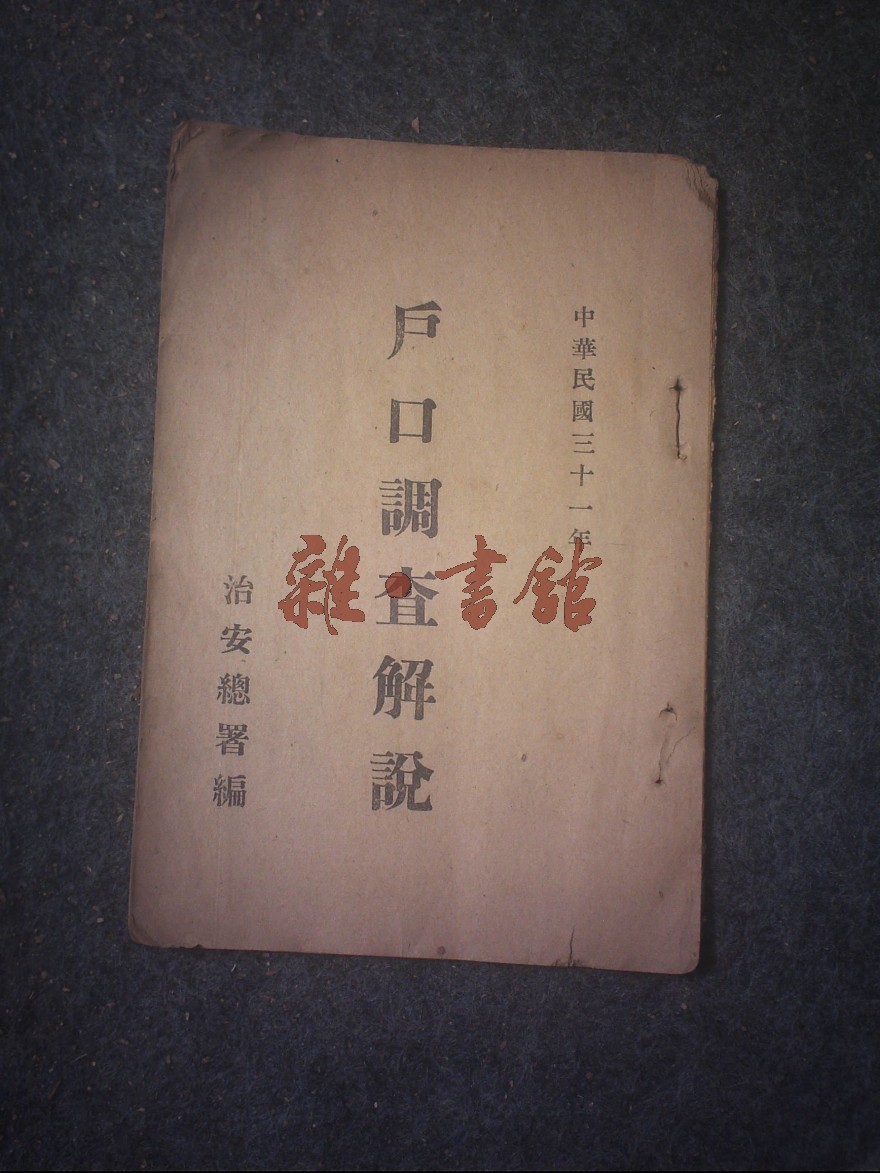 中華民國三十一年
戶口調查解說
治安總署編
雜·書館